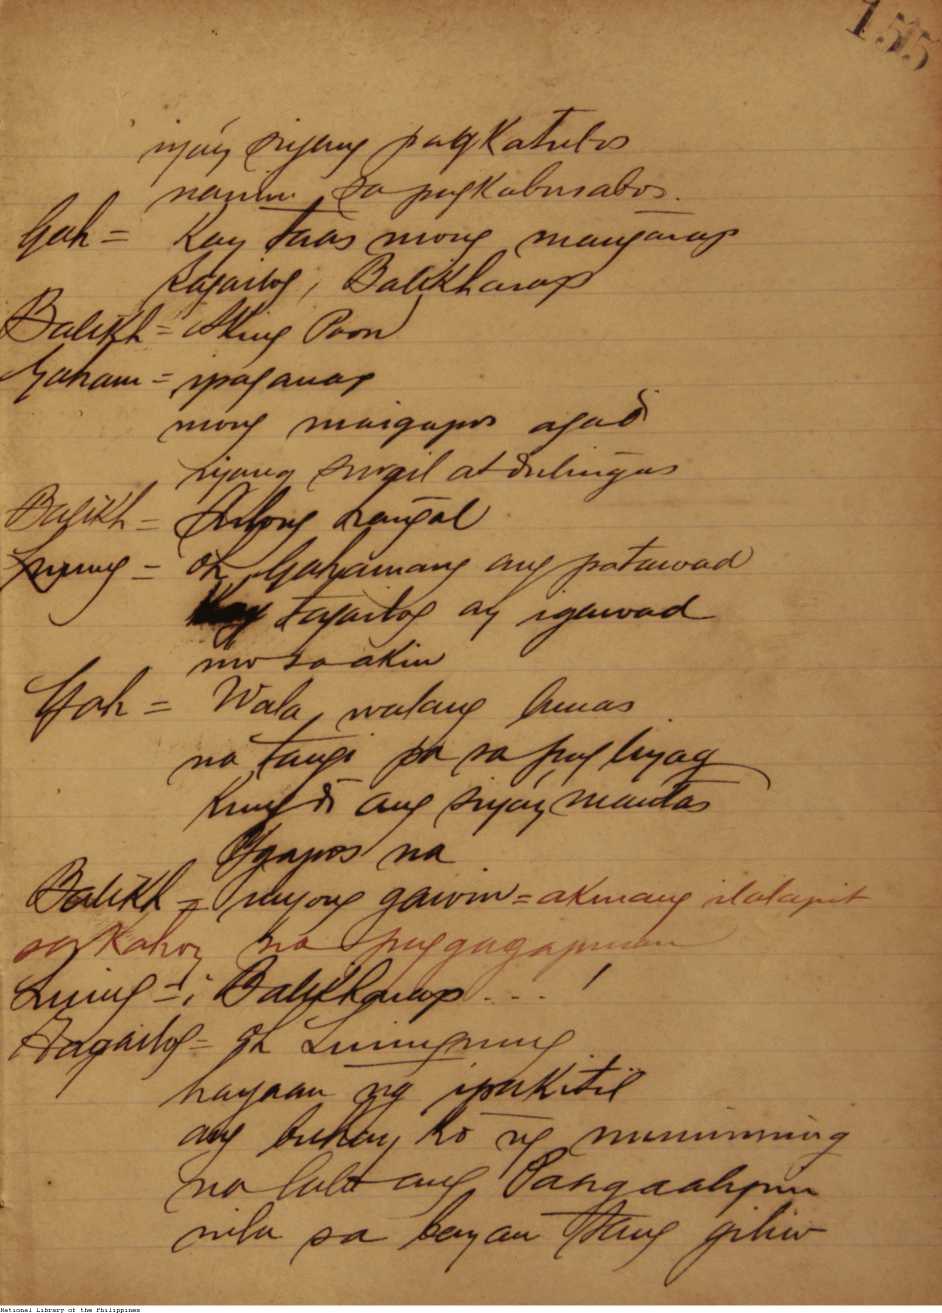 155
niyang pagkatubos
namin sa pagkabusabos.
Gah = Kay taas mong mangarap
Tagailog, Balikharap
Balikh = Aking Poon
Gaham = ipaganap
mong maigapos agad
iyang suwail at
Balikh = Pulong
Luning = Oh, Gahamang ang patawad
kay Tagailog ay igawad
mo sa akin
Gah = Wala, walang lunas
na tangi pa sa pag liyag
kung di ang siya'y mautas
Igapos na
Balikh = gawin = akmang ilalapit
sa kahoy na paggagapusan
Luning = ¡Balikharap . . . !
Tagailog = Oh Luningning
hayaan ng ipakitil
ang buhay ko ng
na lalo ang Pangaalipin
nila sa bayan tang giliw
National Library of the Philippines